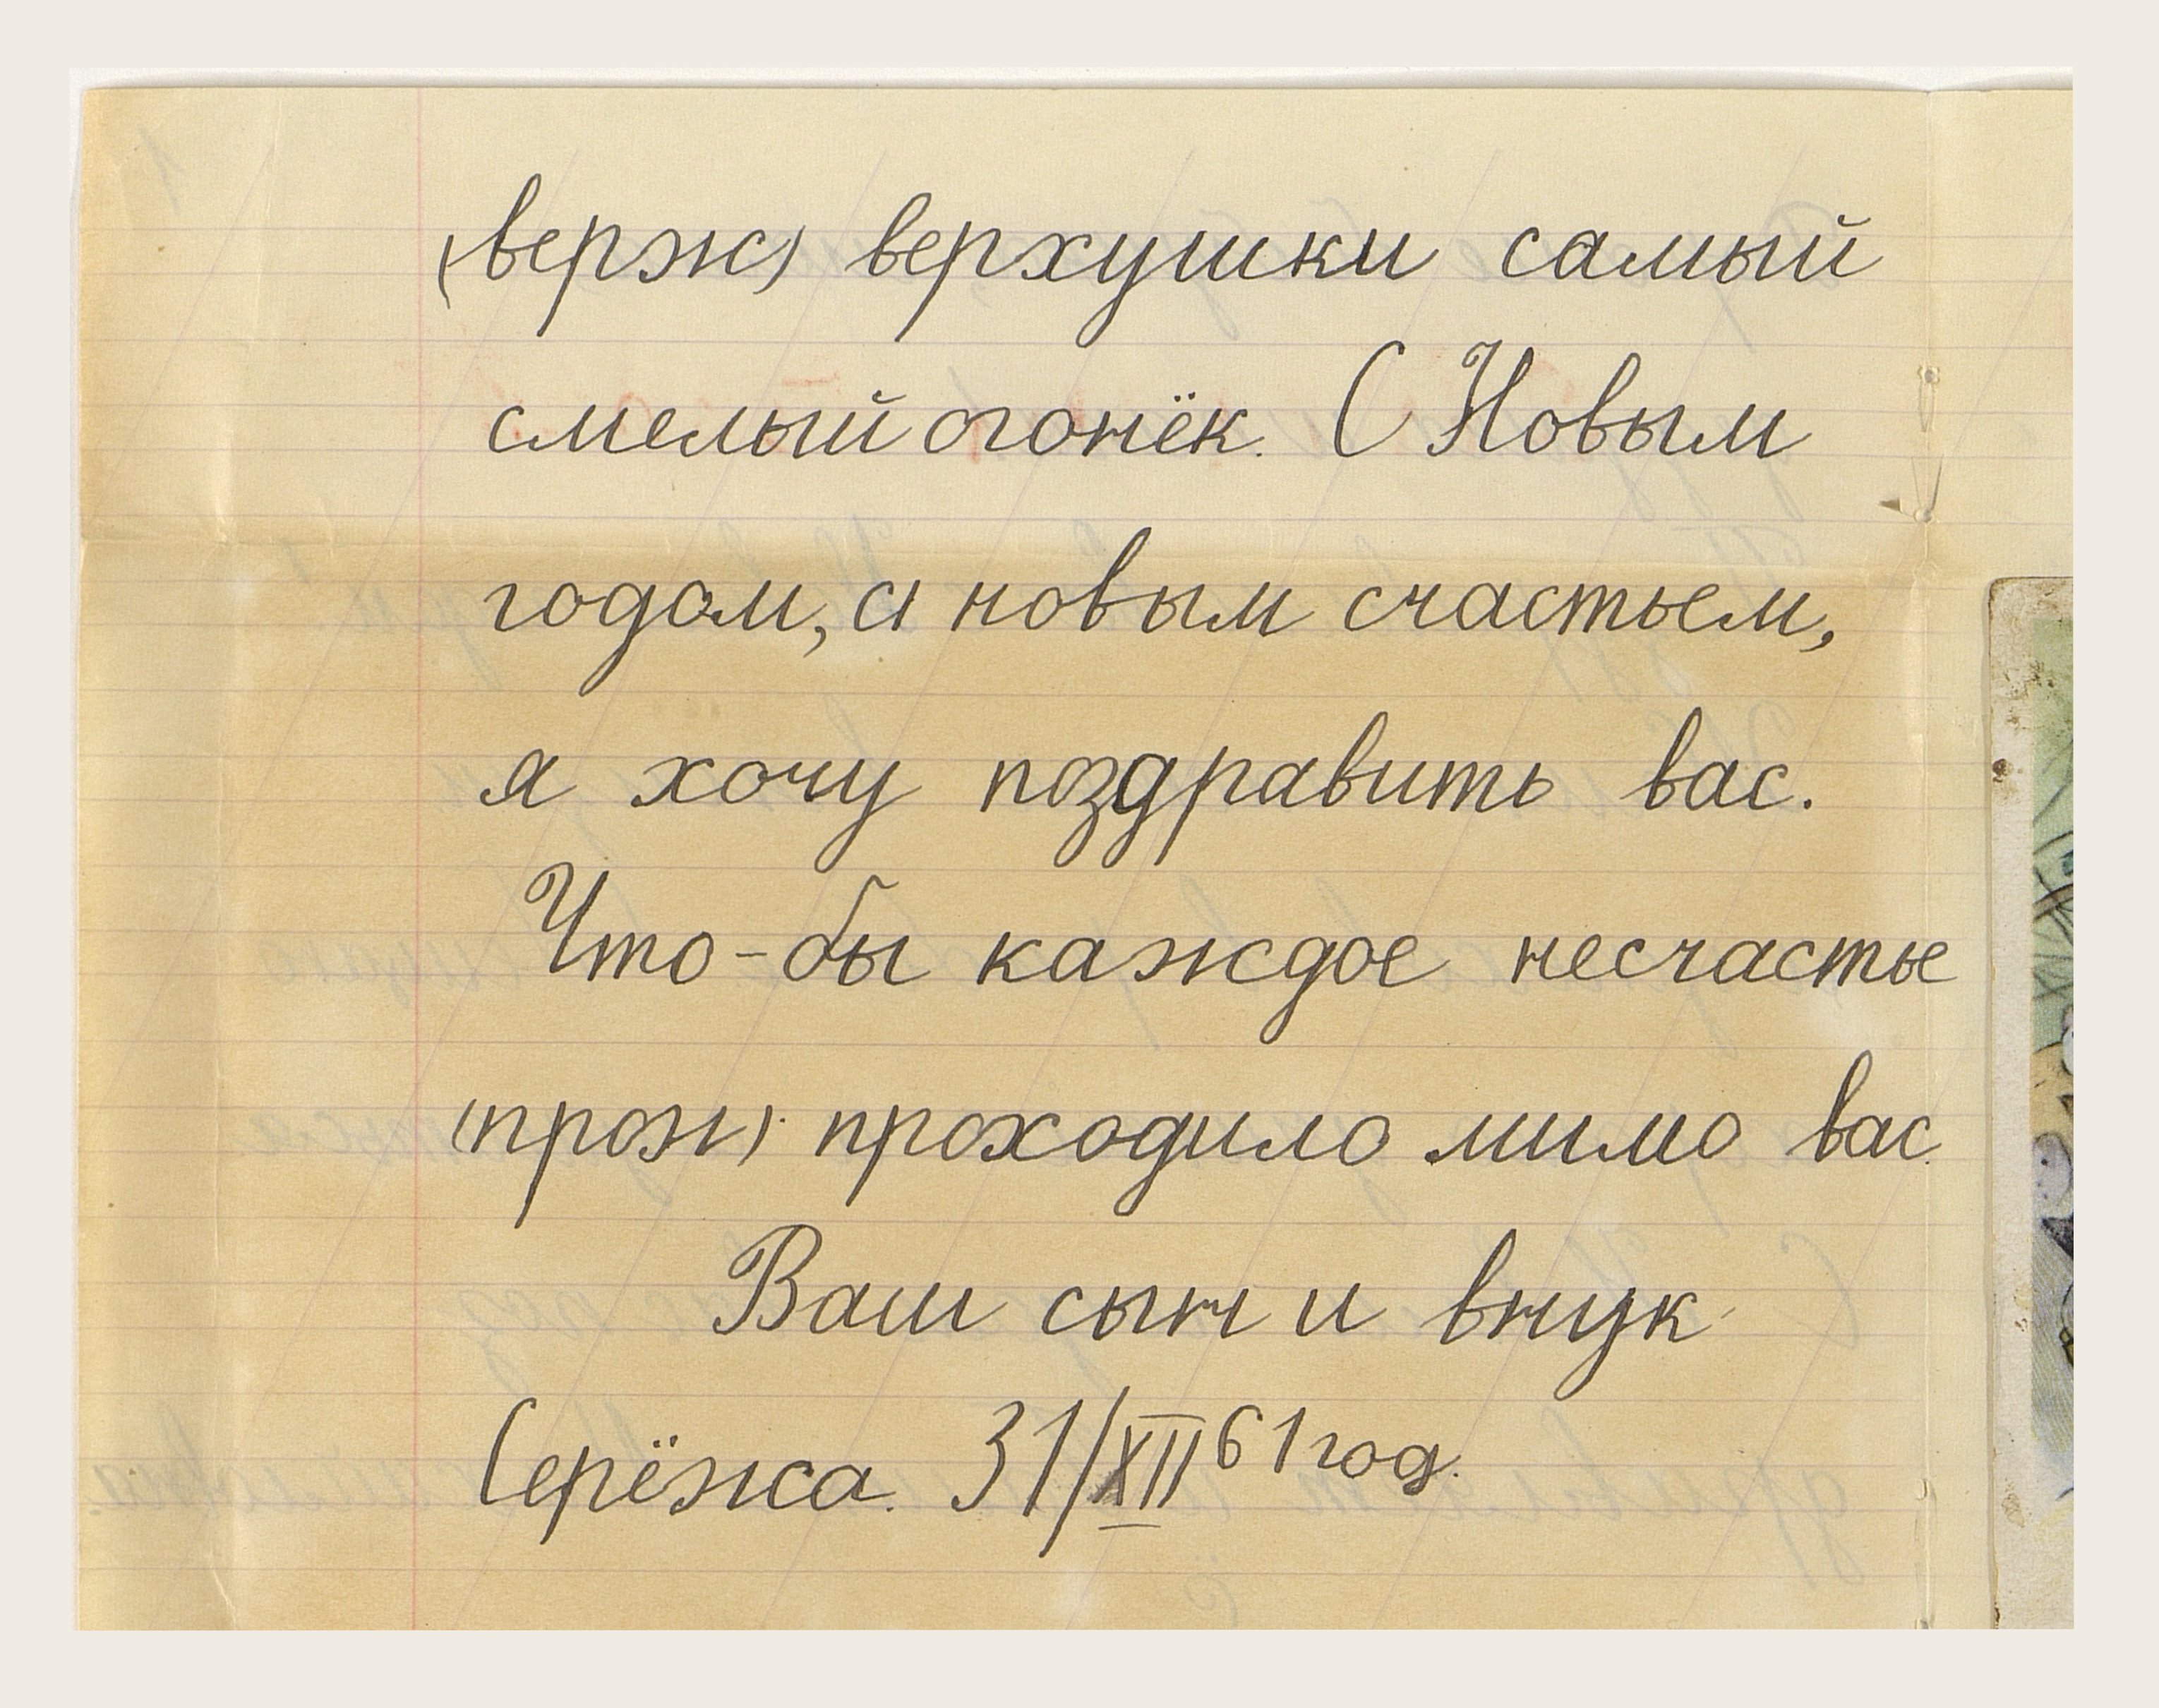 (верж) верхушки самый
смелый огонёк. С Новым
годом, с новым счастьем,
я хочу поздравить вас.
Что-бы каждое несчастье
(прож) проходило мимо вас.
Ваш сын и внук
Серёжа. 31/XII 61 год.